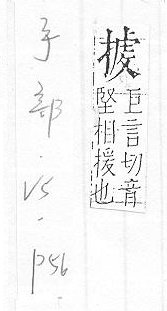 巨言切音
堅相援也
手部.V5.
p56